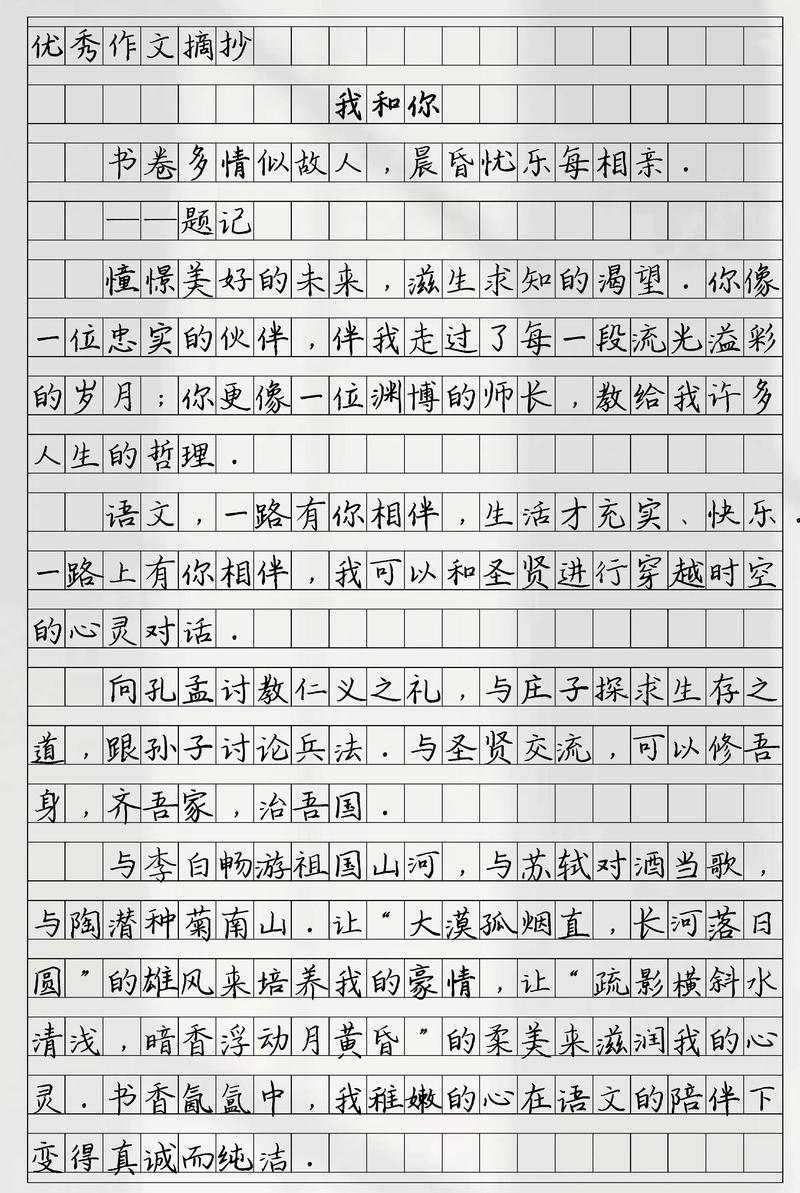 优秀作文摘抄
我和你
书卷多情似故人，晨昏忧乐每相亲．
——题记
憧憬美好的未来，滋生求知的渴望．你像
一位忠实的伙伴，伴我走过了每一段流光溢彩
的岁月；你更像一位渊博的师长，教给我许多
人生的哲理．
语文，一路有你相伴，生活才充实、快乐．
一路上有你相伴，我可以和圣贤进行穿越时空
的心灵对话．
向孔孟讨教仁义之礼，与庄子探求生存之
道，跟孙子讨论兵法．与圣贤交流，可以修吾
身，齐吾家，治吾国．
与李白畅游祖国山河，与苏轼对酒当歌，
与陶潜种菊南山．让“大漠孤烟直，长河落日
圆”的雄风来培养我的豪情，让“疏影横斜水
清浅，暗香浮动月黄昏”的柔美来滋润我的心
灵．书香氤氲中，我稚嫩的心在语文的陪伴下
变得真诚而纯洁．